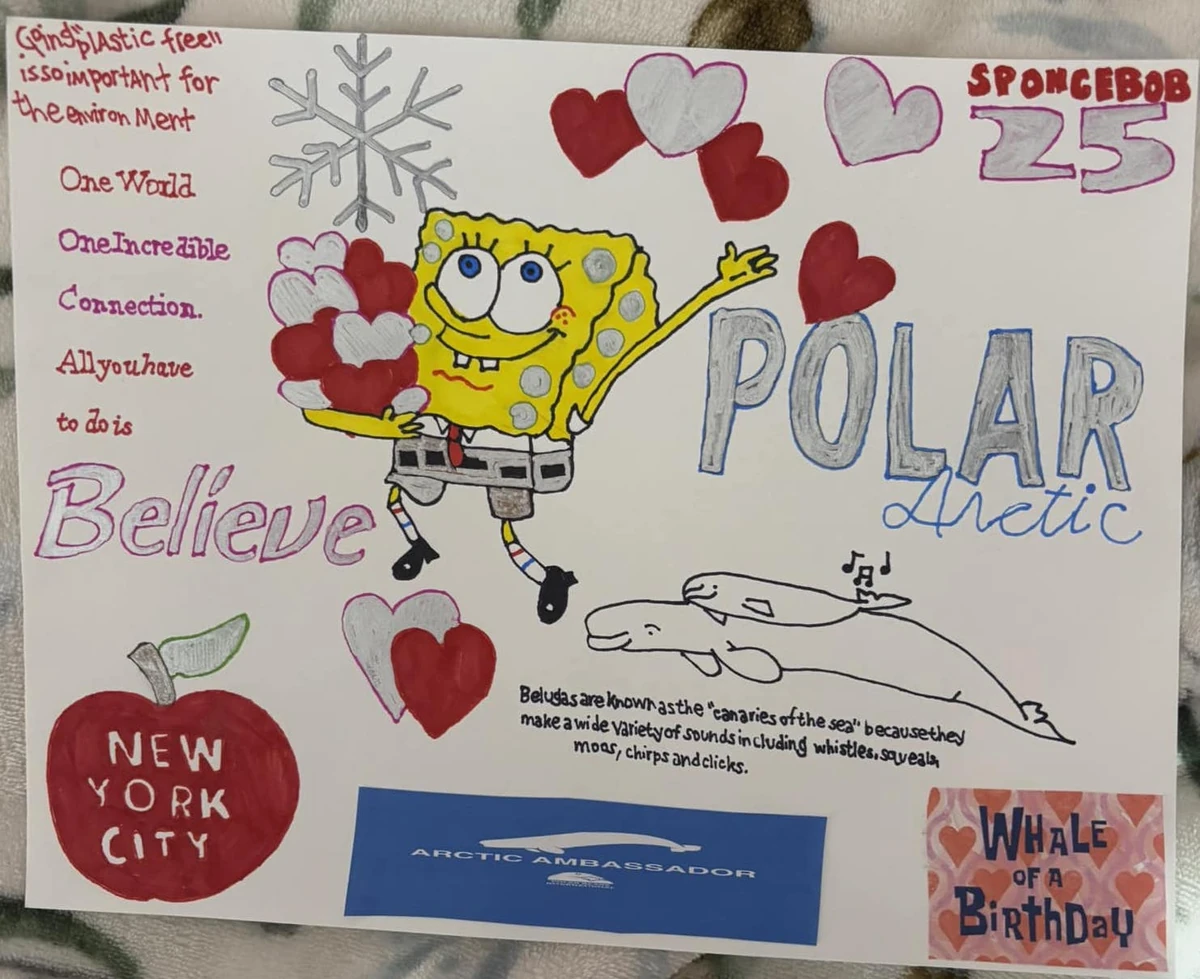 Going "plastic free"
is so important for
the environ Ment
One World
One Incredible
Connection.
All you have
to do is
Believe
SPONGEBOB
25
POLAR
Arctic
Belugas are known as the "canaries of the sea" because they
make a wide variety of sounds including whistles, squeals,
moos, chirps and clicks.
NEW
YORK
CITY
ARCTIC AMBASSADOR
WHALE
OF A
BIRTHDAY